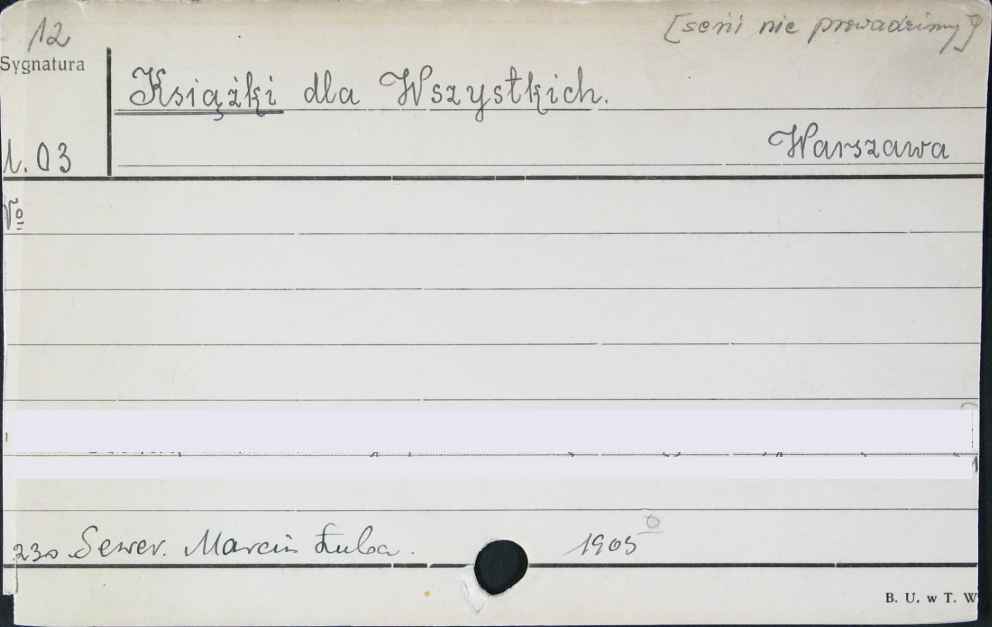 12 [serii nie prowadzimy]
Sygnatura
Książki dla Wszystkich.
Warszawa
1.03
Nº
230 Sewer. Marcin Łuba. 1905
B. U. w T. W